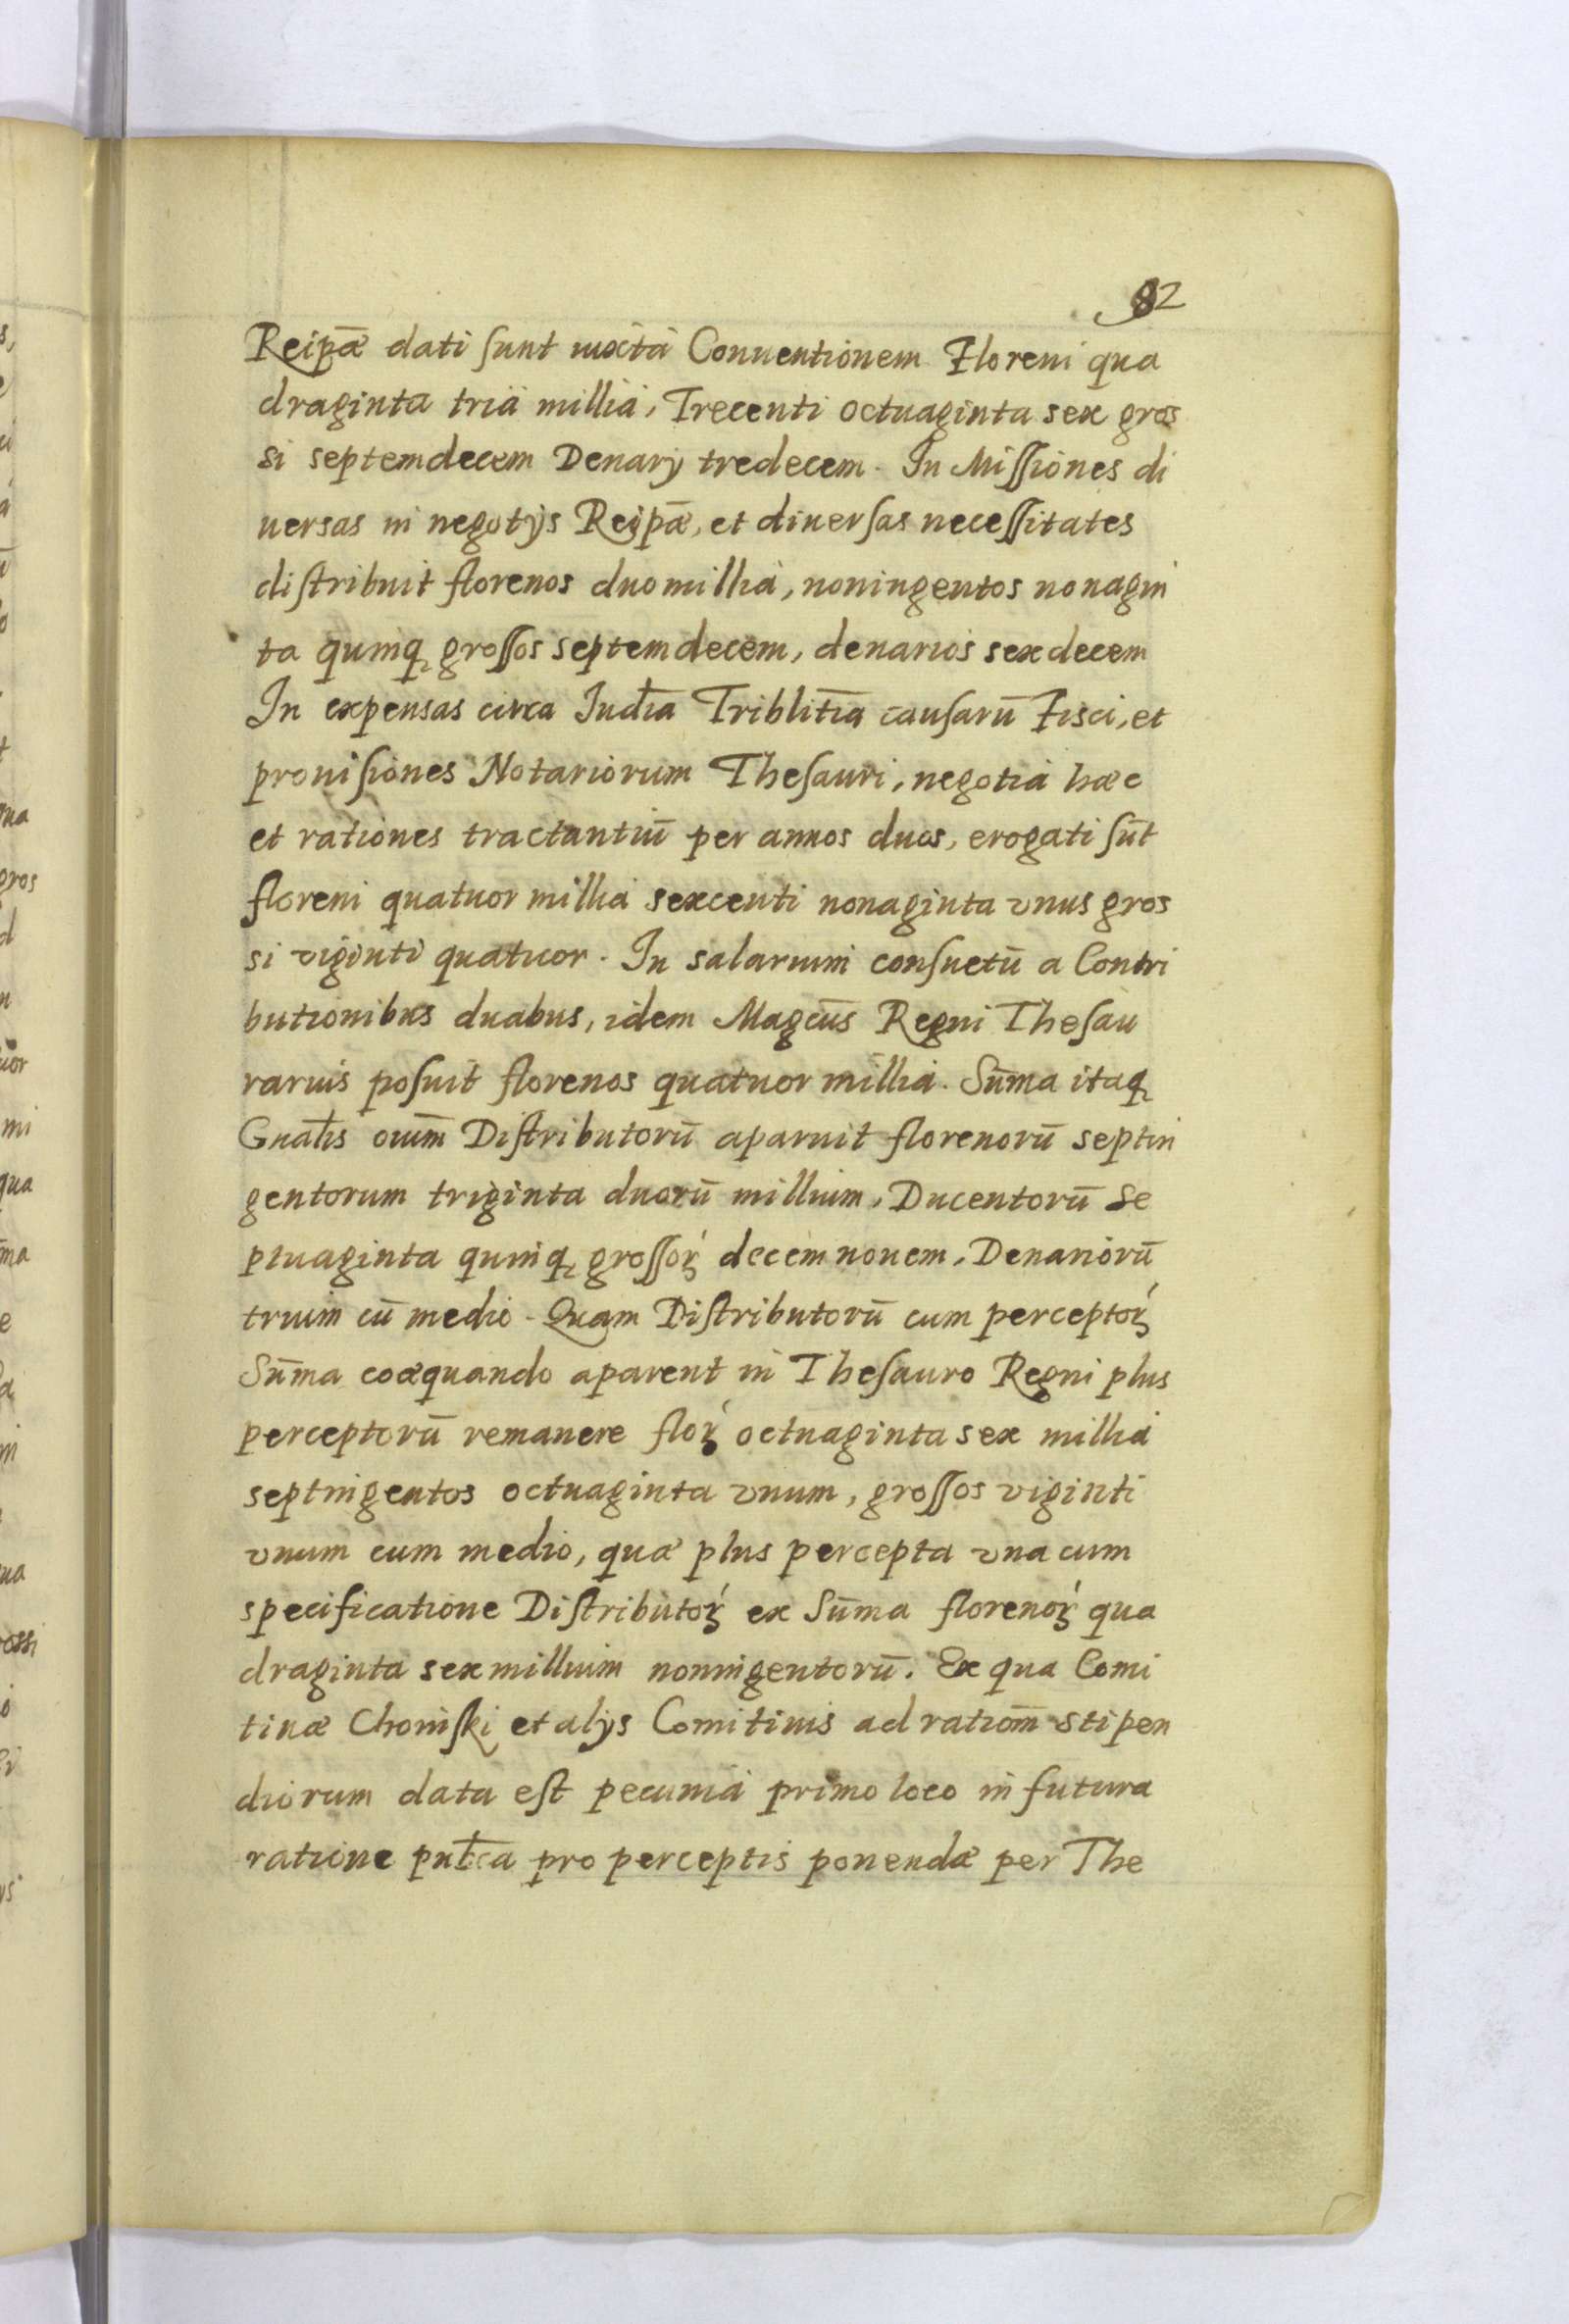 82
Reipāe dati sunt iuxta Conuentionem Floreni qua
draginta tria millia, Trecenti octuaginta sex gros
si septemdecem Denarij tredecem. In Missiones di
uersas in negotijs Reipāe, et diuersas necessitates
distribuit florenos duomillia, noningentos nonagin
ta quinq grossos septemdecem, denarios sexdecem
In expensas circa Iudīa Triblītia causarū Fisci, et
prouisiones Notariorum Thesauri, negotia haec
et rationes tractantiū per annos duos, erogati sūt
floreni quatuor millia sexcenti nonaginta vnus gros
si viginti quatuor. In salarium consuetū a Contri
butionibus duabus, idem Magcūs Regni Thesau
rarius posuit florenos quatuor millia. Sūma itaq
Gnālis oium̄ Distributorū aparuit florenorū septin
gentorum triginta duorū millium, Ducentorū Se
ptuaginta quinq grossoꝝ decem nouem, Denariorū
trium cū medio. Quam Distributorū cum perceptoꝝ
Sūma coaequando aparent in Thesauro Regni plus
perceptorū remanere floꝝ octuaginta sex millia
septingentos octuaginta vnum, grossos viginti
vnum cum medio, quae plus percepta vna cum
specificatione Distributoꝝ ex Sūma florenoꝝ qua
draginta sex millium noningentorū. Ex qua Comi
tiuae Choinski et alijs Comitiuis ad ratiom̄ stipen
diorum data est pecunia primo loco in futura
ratione pro perceptis ponendae per The